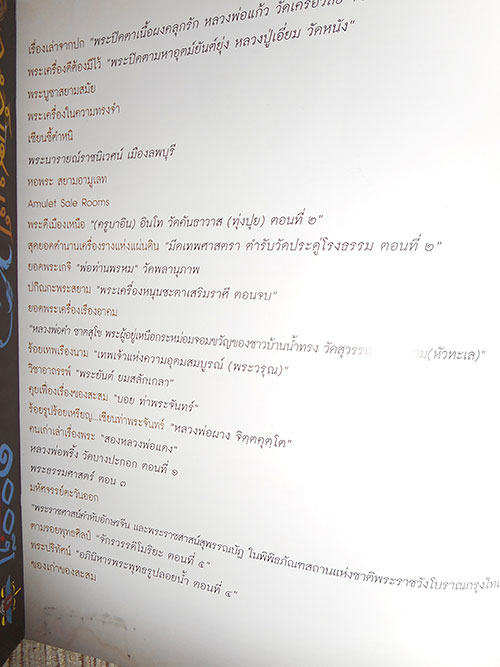 เรื่องเล่าจากปก "พระปิดตาเนื้อผงคลุกรัก หลวงพ่อแก้ว วัดเครือวัลย์
พระเครื่องดีต้องมีไว้ "พระปิดตามหาอุตม์ยันต์ยุ่ง หลวงปู่เอี่ยม วัดหนัง"
พระบูชาสยามสมัย
พระเครื่องในความทรงจำ
เซียนชี้ตำหนิ
พระนารายณ์ราชนิเวศน์ เมืองลพบุรี
หอพระ สยามอามูเลท
Amulet Sale Rooms
พระดีเมืองเหนือ "(ครูบาอิน) อินโท วัดคันธาวาส (ทุ่งปุย) ตอนที่ ๒"
สุดยอดตำนานเครื่องรางแห่งแผ่นดิน "มีดเทพศาสตรา ตำรับวัดประดู่โรงธรรม ตอนที่ ๒"
ยอดพระเกจิ "พ่อท่านพรหม" วัดพลานุภาพ
ปกิณกะพระสยาม "พระเครื่องหนุนชะตาเสริมราศี ตอนจบ"
ยอดพระเครื่องเรืองอาคม
"หลวงพ่อคำ ชาตสุโข พระผู้อยู่เหนือกระหม่อมจอมขวัญของชาวบ้านน้ำทรง วัดสุวรรณ (หัวทะเล)"
ร้อยเทพเรืองนาม "เทพเจ้าแห่งความอุดมสมบูรณ์ (พระวรุณ)"
วิชาอาถรรพ์ "พระยันต์ ยมสลักเกลา"
คุยเฟื่องเรื่องของสะสม "บอย ท่าพระจันทร์"
ร้อยรูปร้อยเหรียญ...เซียนท่าพระจันทร์ "หลวงพ่อผาง จิตฺตคุตฺโต"
คนเก่าเล่าเรื่องพระ "สองหลวงพ่อแดง"
หลวงพ่อพริ้ง วัดบางปะกอก ตอนที่ ๑
พระธรรมศาสตร์ ตอน ๓
มหัศจรรย์ตะวันออก
"พระราชศาสน์คำหับอักษรจีน และพระราชสาสน์สุพรรณบัฏ ในพิพิธภัณฑสถานแห่งชาติพระราชวังโบราณกรุงไทเป
ตามรอยพุทธศิลป์ "จักรวรรดิโมริยะ ตอนที่ ๕"
พระปริทัศน์ "อภินิหารพระพุทธรูปลอยน้ำ ตอนที่ ๔"
ของเก่าของสะสม